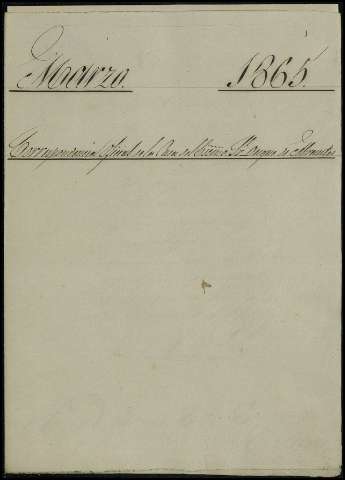 Marzo. 1865.
Correspondencia oficial de la Casa del Excmo. Sr. Duque de